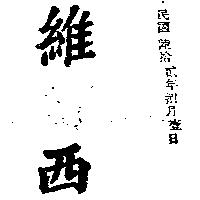 民國陸拾貳年捌月壹日
維西